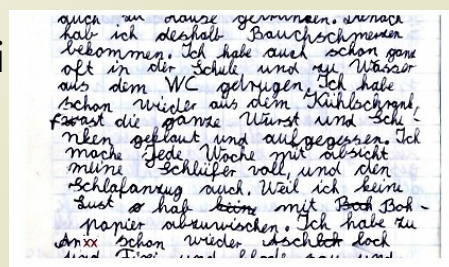 i
auch zu Hause getrunken. Danach
hab ich deshalb Bauchschmerzen
bekommen. Ich habe auch schon ganz
oft in der Schule und zu Wasser
aus dem WC getrugen. Ich habe
schon wieder aus dem Kühlschrank,
fast die ganze Wurst und Schi-
nken geklaut und aufgegessen. Ich
mache Jede Woche mit absicht
meine Schlüfer voll, und den
Schlafanzug auch. Weil ich keine
Lust hab keine mit Boh Boh-
papier abzuwischen. Ich habe zu
Anixx schon wieder Aschloch loch
und und